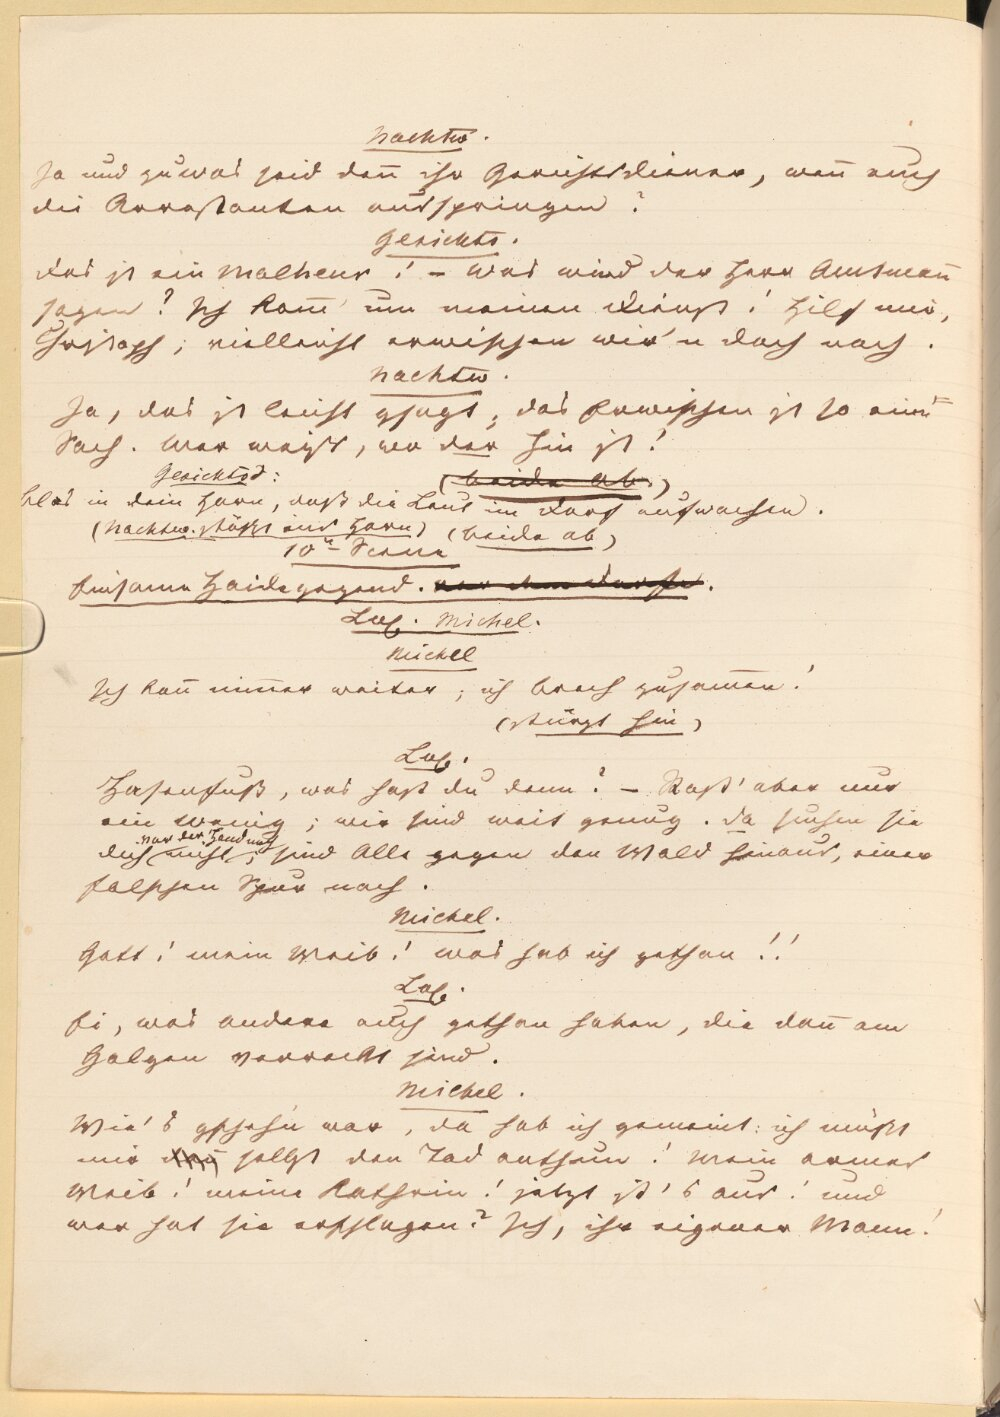 Nachtw.
Ja und zu was seid dañ ihr Gerichtsdiener, wañ euch
die Arrestanten ausspringen?
Gerichts.
Das ist ein Malheur! – Was wird der Herr Amtmañ
sagen? Ich kom̄ um meinen Dienst! Hilf mir,
Christoph; vielleicht erwischen wir'n doch noch.
Nachtw.
Ja, das ist leicht gsagt; das Erwischen ist so eine
Sach. Wer weiß, wo der hin ist!
Gerichtsd: (beide ab.)
blas in dein Horn, daß die Leut im Dorf aufwachen.
(Nachtw. stößt ins Horn) (beide ab)
10te Scene
Einsame Haidegegend. vor dem Dorfe.
Las. Michel.
Michel
Ich kañ nim̄er weiter; ich brech zusam̄en!
(stürzt hin)
Las.
Hasenfuß, was hast du denn? – Rast' aber nur
ein wenig; wir sind weit genug. Da suchen sie
vor der Hand noch
dich nicht; sind Alle gegen den Wald hinaus, einer
falschen Spur nach.
Michel.
Gott! mein Weib! was hab ich gethan!!
Las.
Ei, was andere auch gethan haben, die dañ am
Galgen verreckt sind.
Michel.
Wie's gscheh'n war, da hab ich gemeint: ich müßt
mir selbst den Tod anthun! Mein armes
Weib! meine Kathrein! jetzt ist's aus! und
wer hat sie erschlagen? Ich, ihr eigener Mann!